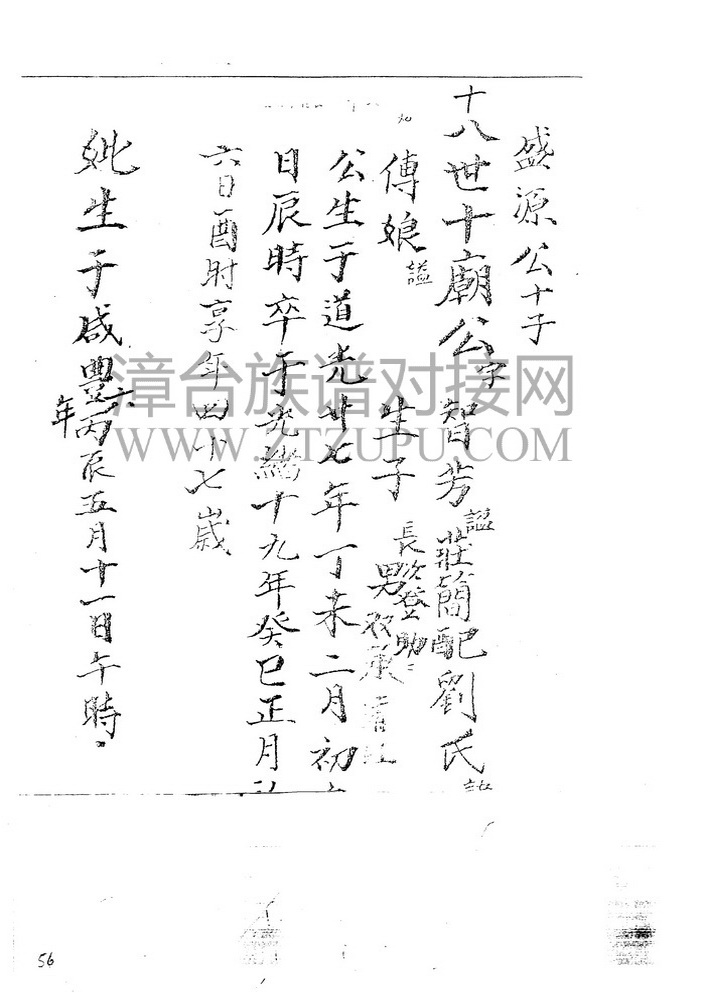 盛源公十子
十八世十廟公字智芳諡莊簡配劉氏
傳娘諡 生子 長 次 登助 男
公生于道光廿七年丁未二月初
日辰時卒于光緒十九年癸巳正月
六日酉时享年四十七歲
妣生于咸豐六年丙辰五月十一日午時
漳台族谱对接网
WWW.ZTZUPU.COM
56